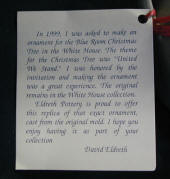 In 1999, I was asked to make an
ornament for the Blue Room Christmas
Tree in the White House. The theme
for the Christmas Tree was "United
We Stand." I was honored by the
invitation and making the ornament
was a great experience. The original
remains in the White House collection.
Eldreth Pottery is proud to offer
this replica of that exact ornament,
cast from the original mold. I hope you
enjoy having it as part of your
collection
David Eldreth